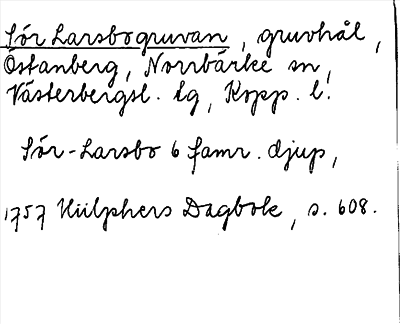 Sör Larsbogruvan, gruvhål,
Östanberg, Norrbärke sn,
Västerbergsl. lg, Kopp. l.
Sör-Larsbo 6 famr. djup,
1757 Hülphers Dagbok, s. 608.